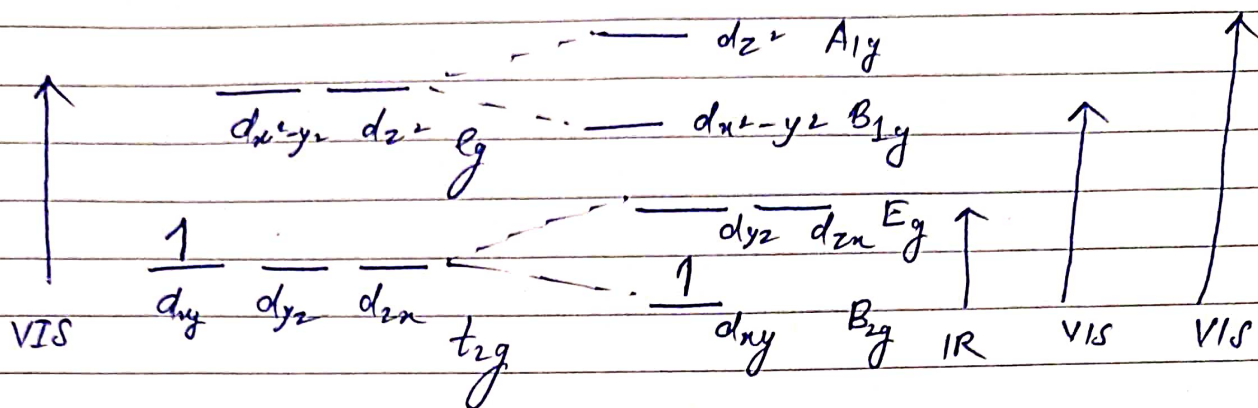 dz² A1g
dx²-y² dz² eg
dx²-y² B1g
1
dyz dzx Eg
1
dxy dyz dzx t2g
dxy B2g
VIS
IR VIS VIS